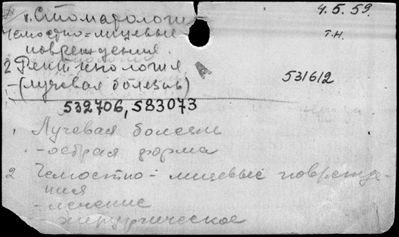 1. Стоматология 4.5.59.
Челюстно-лицевые т.н.
повреждения.
2 Рентгенология
-(лучевая болезнь) 531612
532706, 583073
1 Лучевая болезнь
-острая форма
2 Челюстно-лицевые поврежде-
ния
-лечение
хирургическое